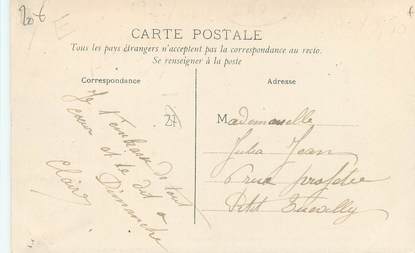 20 €
CARTE POSTALE
Tous les pays étrangers n'acceptent pas la correspondance au recto.
Se renseigner à la poste
Correspondance
Adresse
Je t'embrasse de tout
coeur et te dit a
Dimanche
Claire
21
Mademoiselle
Julia Jean
6 rue
Petit Quevilly